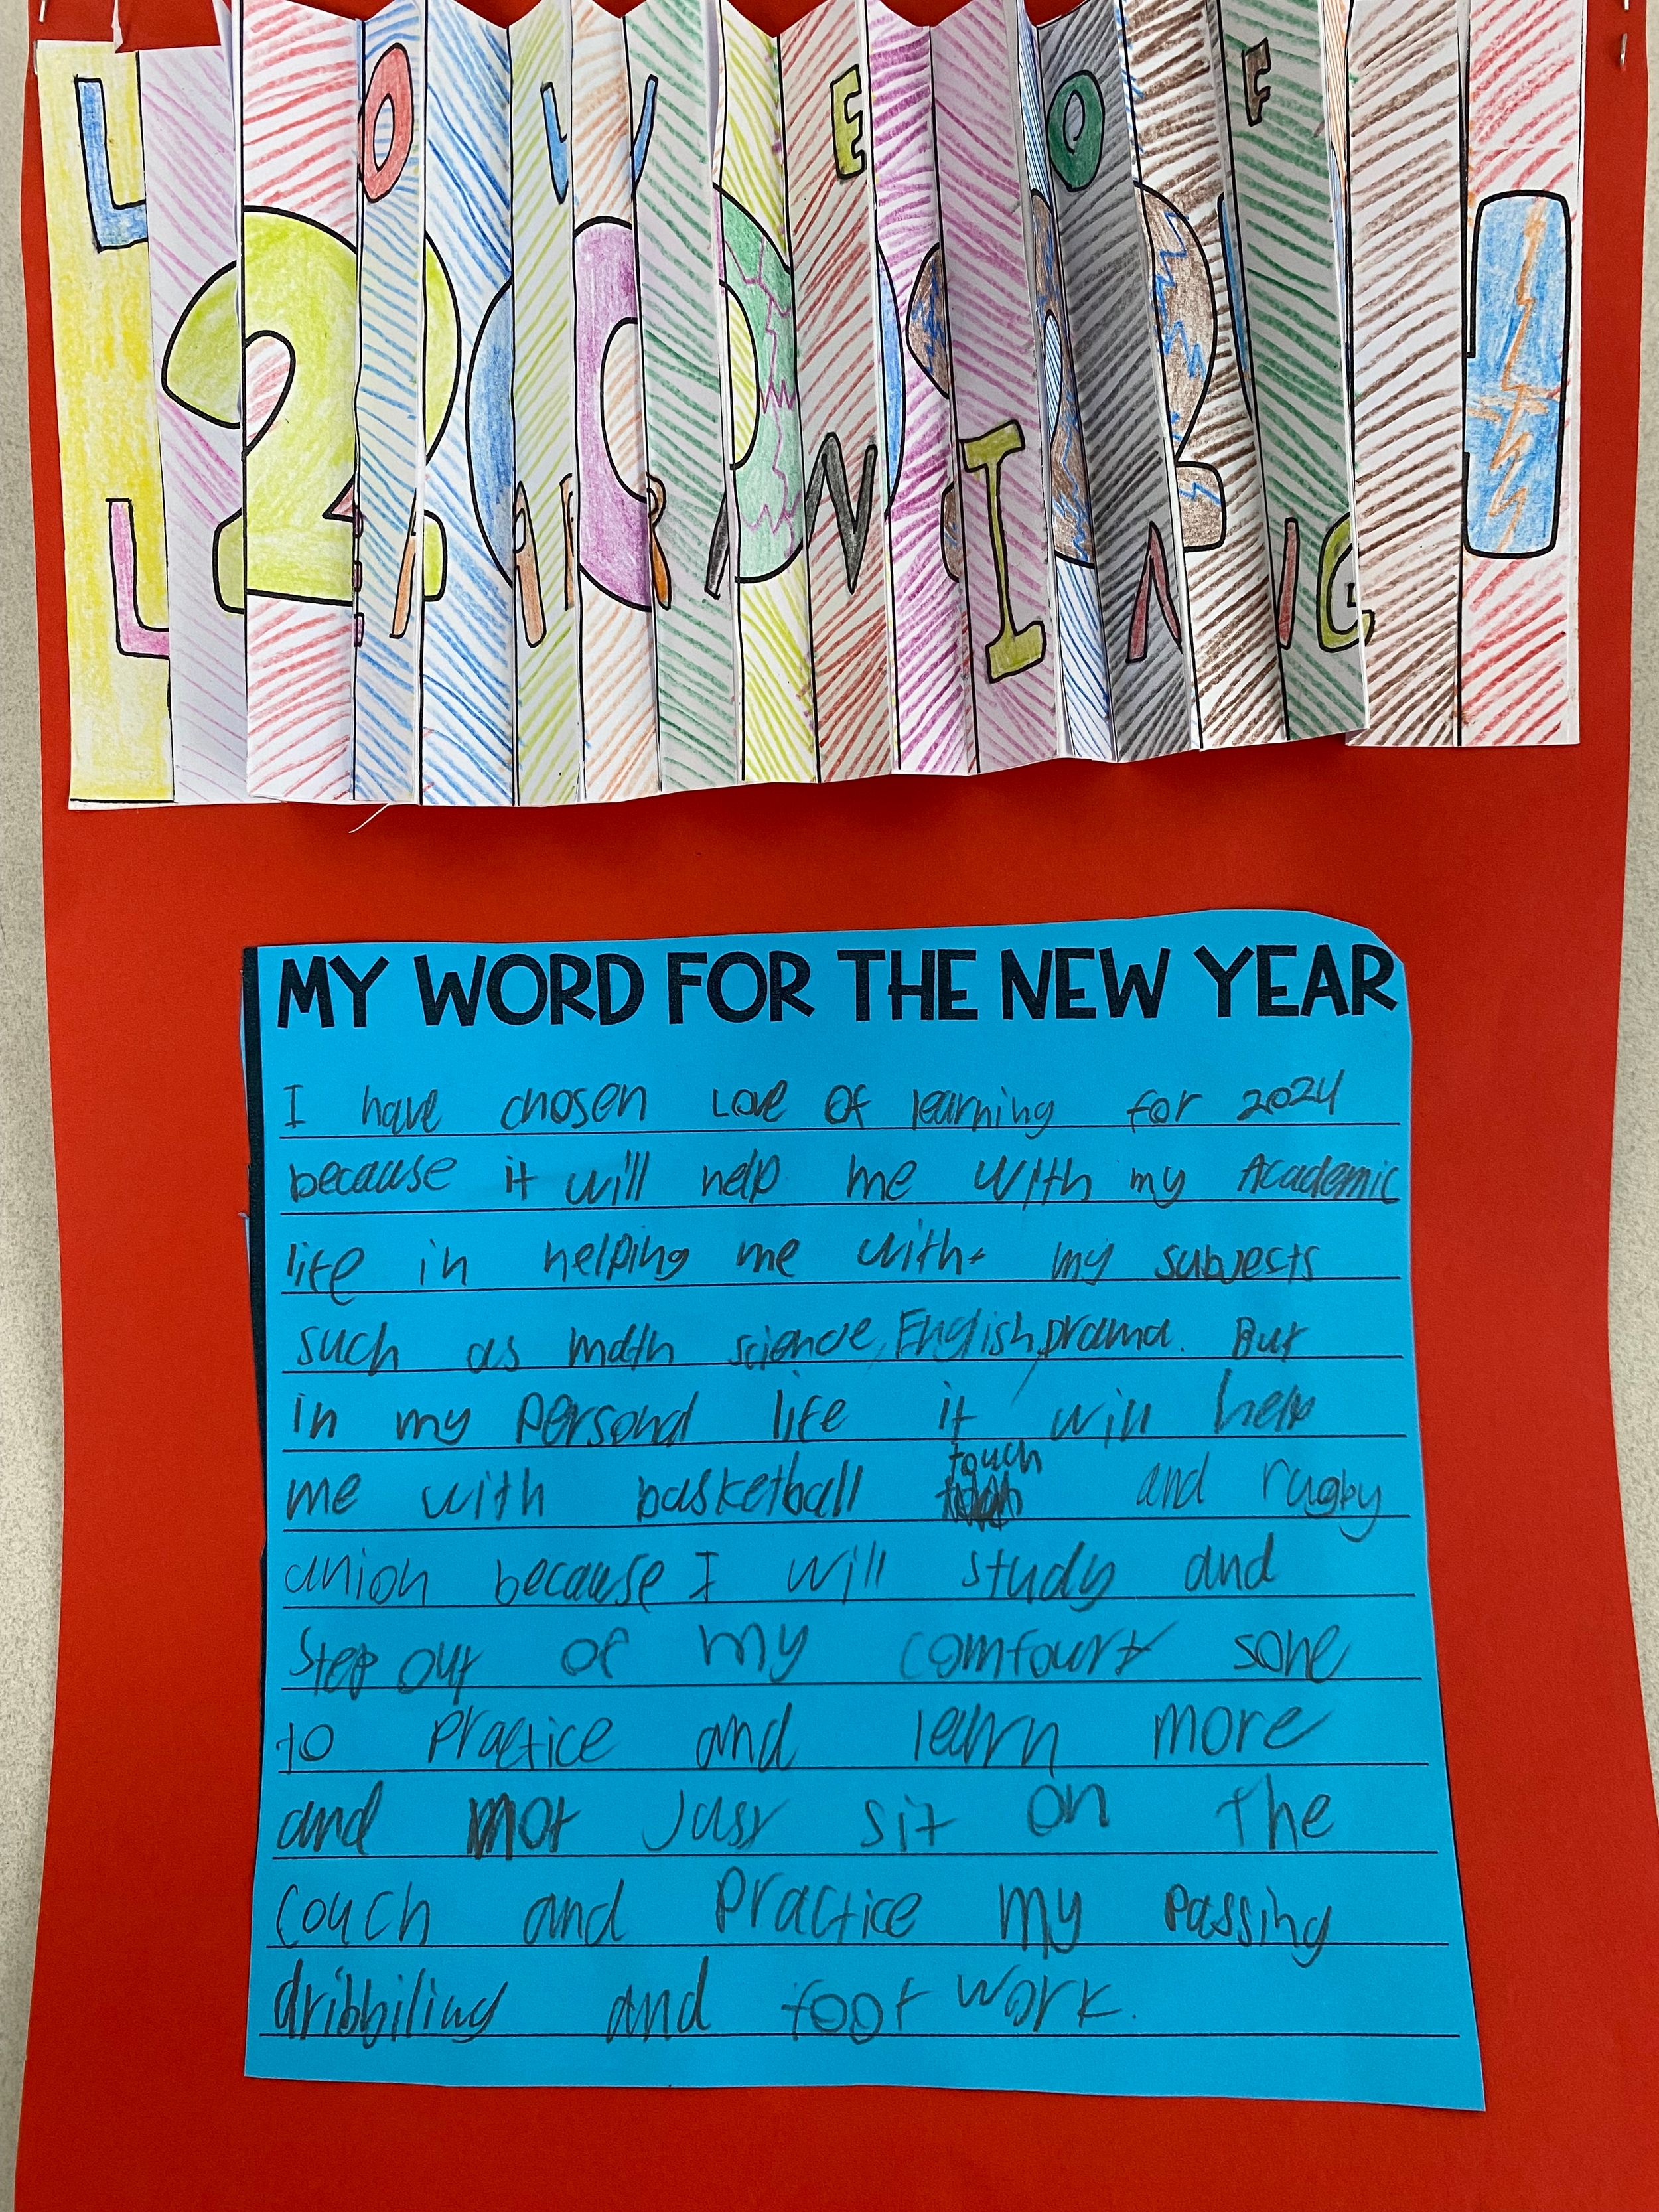 LOVE OF
2024
LEARNING
MY WORD FOR THE NEW YEAR
I have chosen Love OF learning for 2024
because it will help me with my Academic
life in helping me with my subjects
such as math science, English, Drama. But
in my personal life it will help
me with basketball touch and rugby
union because I will study and
Step out of my comfourt sone
to practice and learn more
and not Just sit on the
couch and practice my passing
dribbiling and foot work.